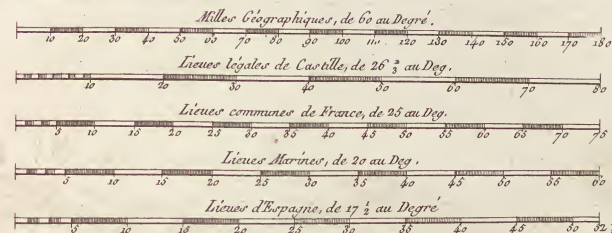 Milles Géographiques, de 60 au Degré.
10 20 30 40 50 60 70 80 90 100 110 120 130 140 150 160 170 180
Lieues légales de Castille, de 26 2/3 au Deg.
10 20 30 40 50 60 70 80
Lieues communes de France, de 25 au Deg.
5 10 15 20 25 30 35 40 45 50 55 60 65 70 75
Lieues Marines, de 20 au Deg.
5 10 15 20 25 30 35 40 45 50 55 60
Lieues d'Espagne, de 17 1/2 au Degré
5 10 15 20 25 30 35 40 45 50 52